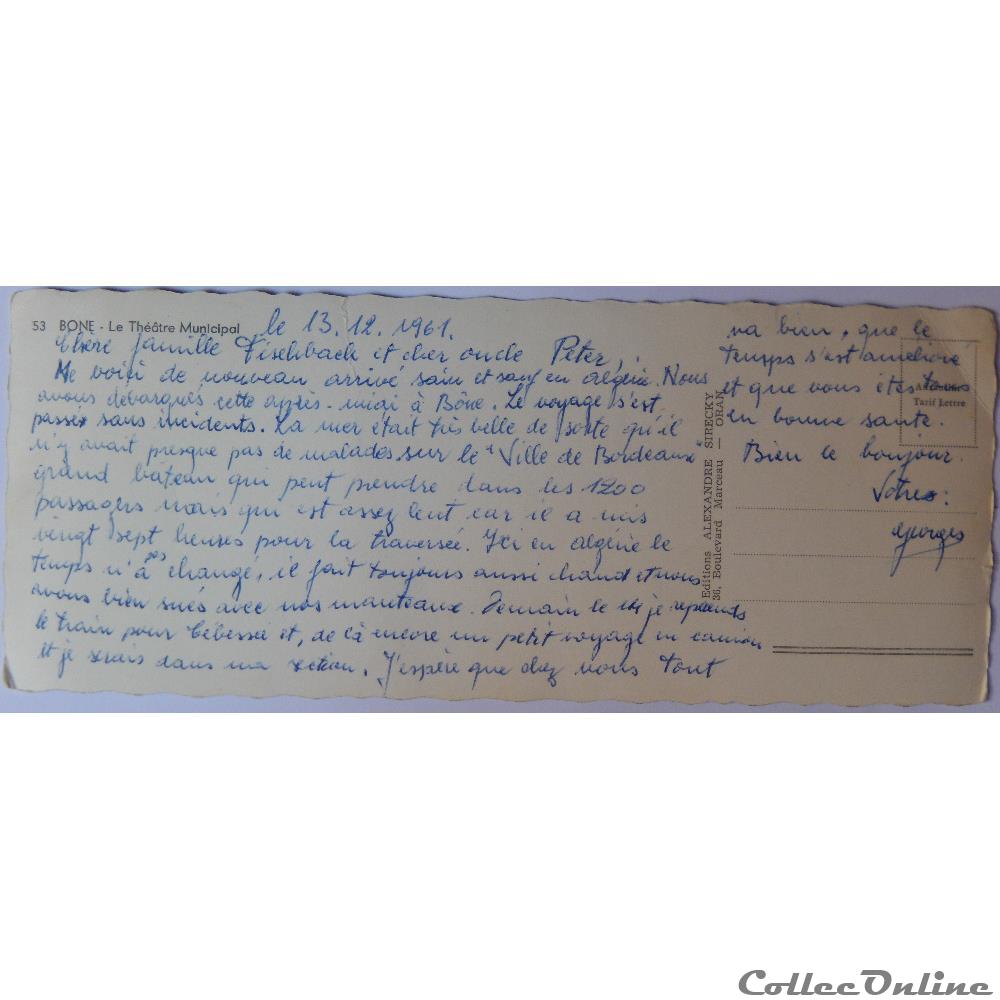 53 BONE - Le Théâtre Municipal
le 13.12.1961.
Chère famille Fischbach et cher oncle Péter,
Me voici de nouveau arrivé sain et sauf en algérie. Nous
avons débarqués cette après-midi à Bône. Le voyage s'est
passé sans incidents. La mer était très belle de sorte qu'il
n'y avait presque pas de malades sur le "Ville de Bordeaux"
grand bateau qui peut prendre dans les 1200
passagers mais qui est assez lent car il a mis
vingt sept heures pour la traversée. Ici en algérie le
temps n'a pas changé, il fait toujours aussi chaud et nous
avons bien sués avec nos manteaux. Demain le 14 je reprends
le train pour Tébessa et, de là encore un petit voyage en camion
et je serais dans ma section. J'espère que chez vous tout
va bien, que le
temps s'est amélioré
et que vous êtes tous
en bonne santé.
Bien le bonjour.
Votre:
Georges
Editions ALEXANDRE SIRECKY
36, Boulevard Marceau — ORAN
Tarif Lettre
CollecOnline